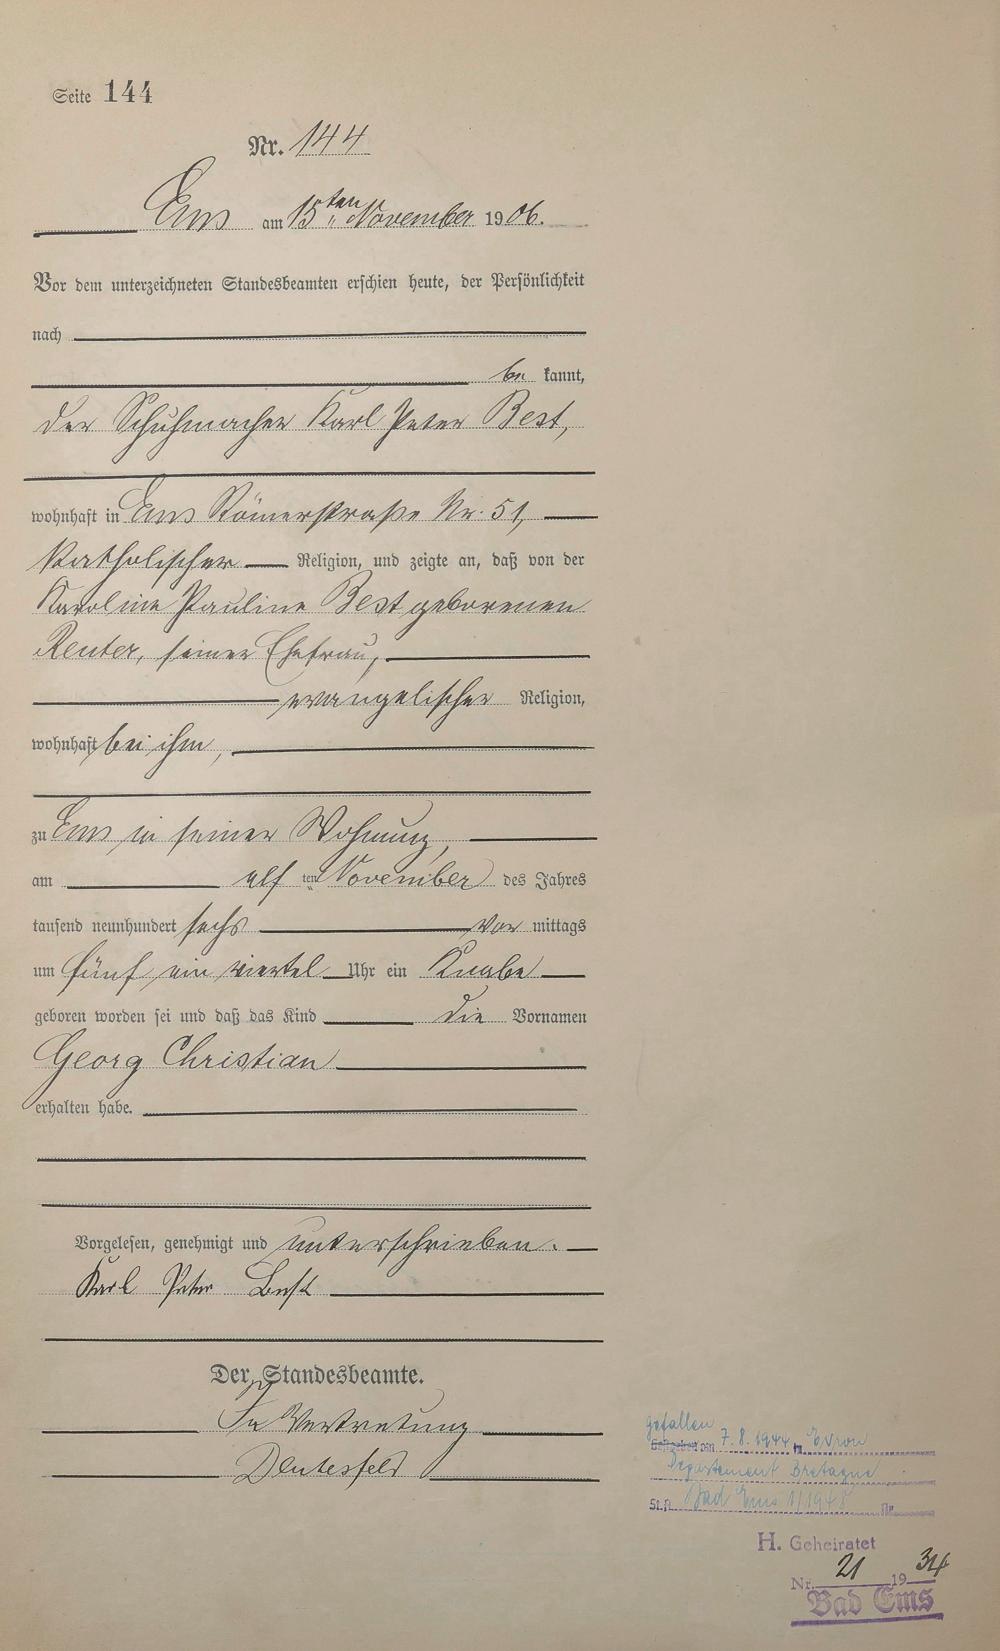 Seite 144
Nr. 144
Ems am 15ten November 1906.
Vor dem unterzeichneten Standesbeamten erschien heute, der Persönlichkeit
nach
be kannt,
der Schuhmacher Karl Peter Best,
wohnhaft in Ems Römerstraße Nr. 51,
katholischer Religion, und zeigte an, daß von der
Karoline Pauline Best geborenen
Reuter, seiner Ehefrau,
evangelischer Religion,
wohnhaft bei ihm,
zu Ems in seiner Wohnung,
am elf ten November des Jahres
tausend neunhundert sechs vor mittags
um fünf ein viertel Uhr ein Knabe
geboren worden sei und daß das Kind die Vornamen
Georg Christian
erhalten habe.
Vorgelesen, genehmigt und unterschrieben.
Karl Peter Best
Der Standesbeamte.
In Vertretung
gefallen
Gestorben am 7.8.1944 in Evron
Departement Bretagne
St.A. Bad Ems 1/1948 Nr.
H. Geheiratet
Nr. 21 1934
Bad Ems